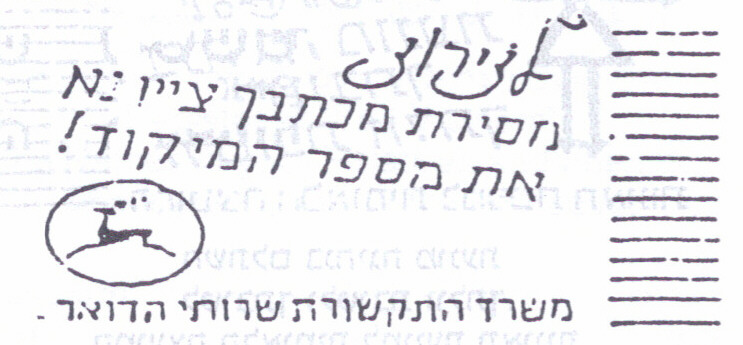 לזירוז
מסירת מכתבך ציין נא
את מספר המיקוד!
משרד התקשורת שרותי הדואר